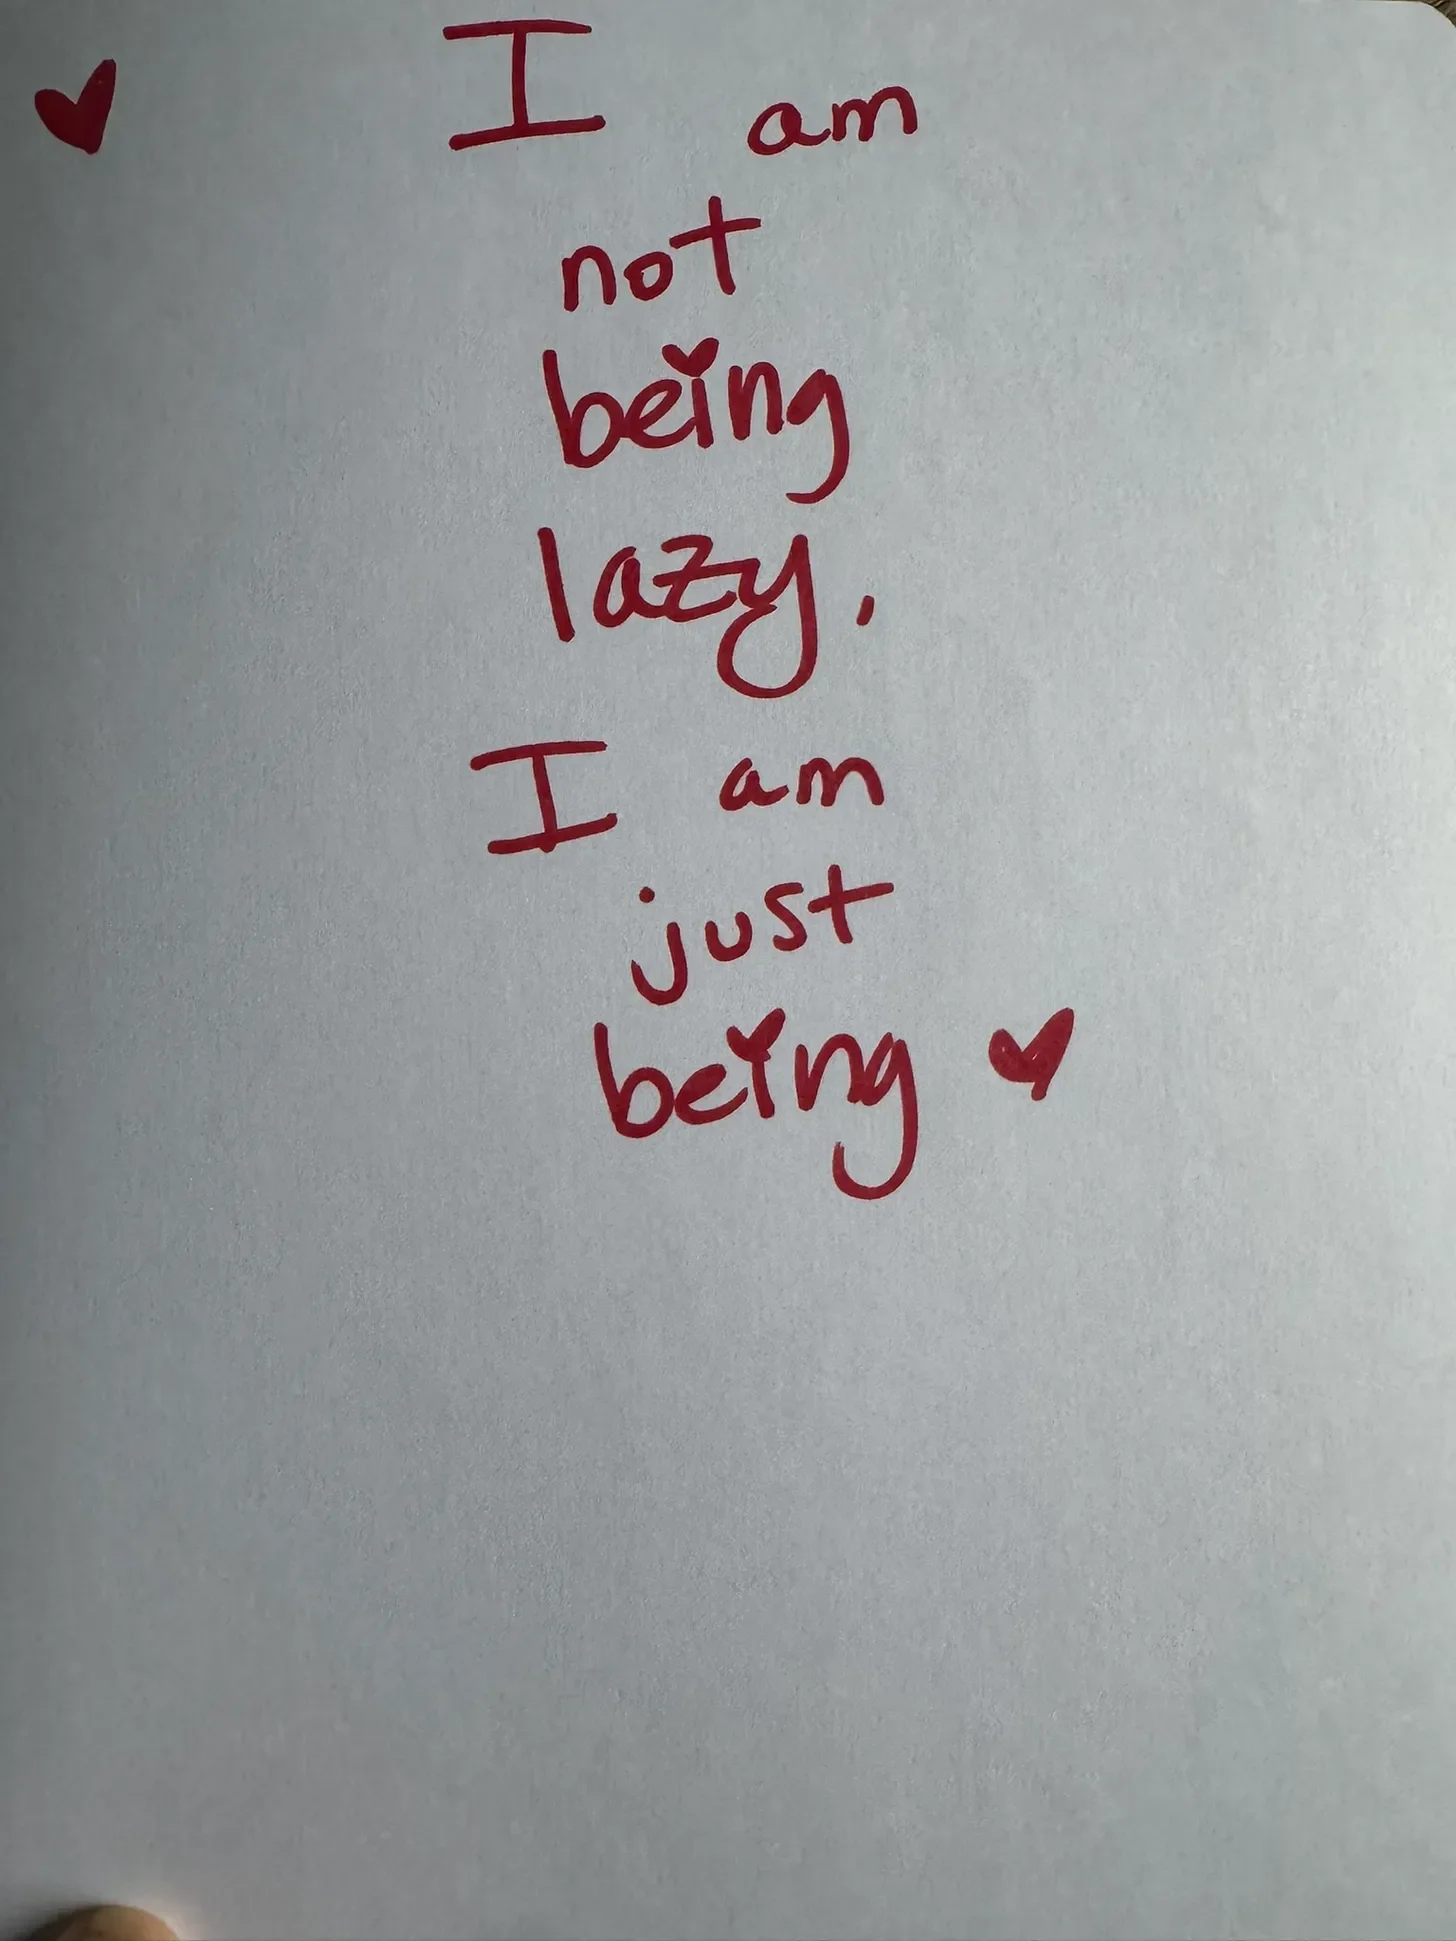 I am
not
being
lazy,
I am
just
being